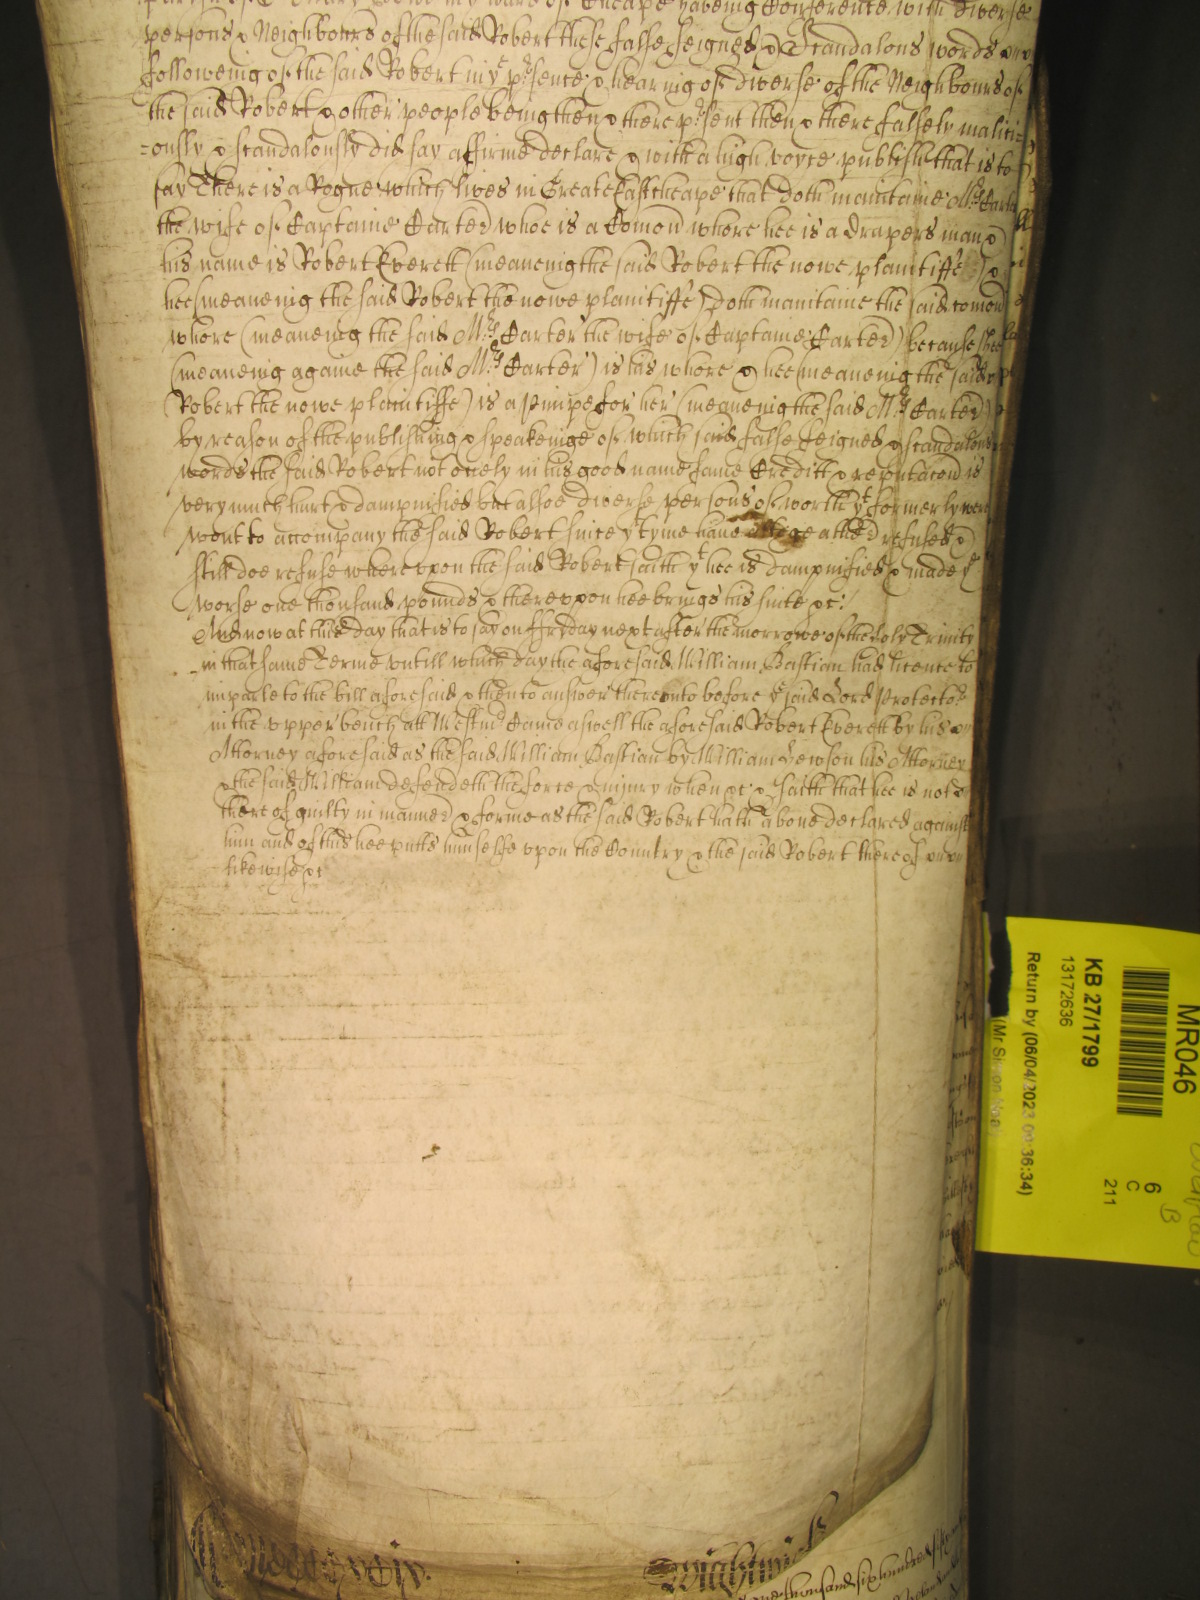 parish of St Mary Bowe in y ward of Cheape haveing Conference with diverse
persons & Neighbours of the said Robert these false feigned & Scandalous words
followeing of the said Robert in ye prsence & hearing of diverse of the Neighbours of
the said Robert & other people being then & there prsent then & there falsely malici=
=ously & scandalously did say affirme declare & with a high voyce publish that is to
say There is a Rogue which lives in Greate Eastcheape that doth maintaine Mrs Carter
the wife of Captaine Carter whoe is a Comon whore hee is a drapers man &
his name is Robert Everett (meaneing the said Robert the nowe plaintiffe) &
hee (meaneing the said Robert the nowe plaintiffe) doth maintaine the said comon
whore (meaneing the said Mrs Carter the wife of Captaine Carter) because shee
(meaneing againe the said Mrs Carter) is his whore & hee (meaneing the said
Robert the nowe plaintiffe) is a pimpe for her (meaneing the said Mrs Carter)
by reason of the publishing & speakeinge of which said false feigned & scandalous
words the said Robert not onely in his good name fame Creditt & reputacon is
very much hurt & dampnified but alsoe diverse persons of worth yt formerly were
wont to accompany the said Robert since yt tyme have altogeather refused &
still doe refuse whereupon the said Robert saith yt hee is dampnified & made ye
worse one thousand pounds & thereupon hee brings his suite &c:
And now at this day that is to say on ffryday next after the morrowe of the holy Trinity
in that same Terme untill which day the aforesaid William Bastian had licence to
imparle to the bill aforesaid & then to answer thereunto before ye said Lord Protector
in the upper bench att Westmr Came aswell the aforesaid Robert Everett by his
Attorney aforesaid as the said William Bastian by William Lewson his Attorney
& the said William defendeth the force & injury when &c & saith that hee is not
thereof guilty in manner & forme as the said Robert hath above declared against
him and of this hee putts himselfe upon the Country & the said Robert thereof
likewise &c
Wightwick
one thousand six hundred
MR046
KB 27/1799
13172636
Return by (06/04/2023 09:36:34)
6
C
211
B